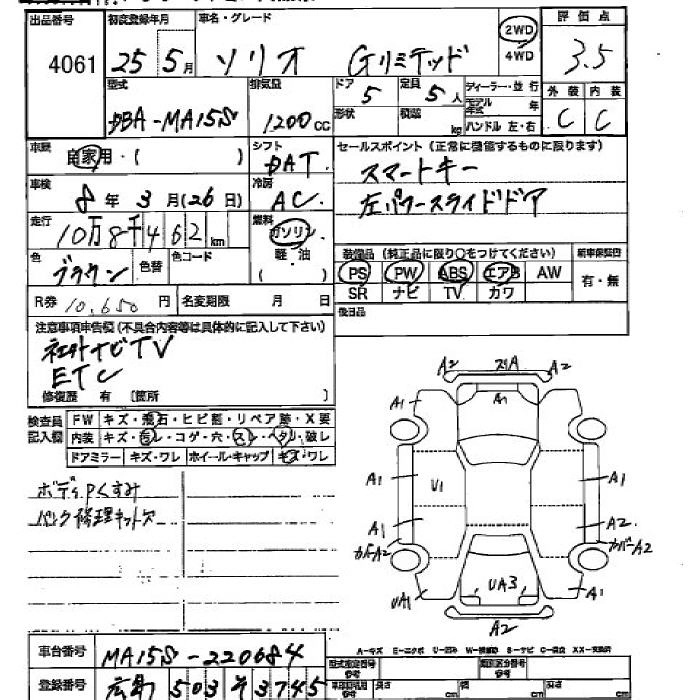 出品番号 初度登録年月 車名・グレード 評価点
4061 25年5月 ソリオ Gリミテッド 2WD 4WD 3.5
型式 排気量 ドア 定員 ディーラー・並行 外装 内装
DBA-MA15S 1200cc 5 5人 モデル年式 年 C C
形状 積載 kg ハンドル 左・右
車歴 自家用・( ) シフト DAT セールスポイント(正常に機能するものに限ります)
スマートキー
車検 8年3月(26日) 冷房 AC 左パワースライドドア
走行 10万8千462km 燃料 ガソリン 軽油 ( )
色 ブラウン 色替 色コード
装備品(純正品に限り○をつけてください) 新車保証書
PS PW ABS エアB AW 有・無
SR ナビ TV カワ
R券 10,650円 名変期限 月 日 後日品
注意事項申告欄(不具合内容等は具体的に記入して下さい)
社外ナビTV
ETC
修復歴 有 [箇所 ]
検査員記入欄 FW キズ・飛石・ヒビ割・リペア跡・X要
内装 キズ・汚レ・コゲ・穴・スレ・ヘタリ・破レ
ドアミラー キズ・ワレ ホイール・キャップ キズ・ワレ
ボディPくすみ
パンク修理キット欠
A2 A2
A1 A1 A1
A1 U1 A1
A1 A2
カバーA2 カバーA2
UA1 UA3 A1
A2
車台番号 MA15S-220684
A-キズ E-エクボ U-凹ミ
登録番号 広島 503 そ 3745
型式指定番号 参考 類別区分番号 参考
長さ cm cm cm